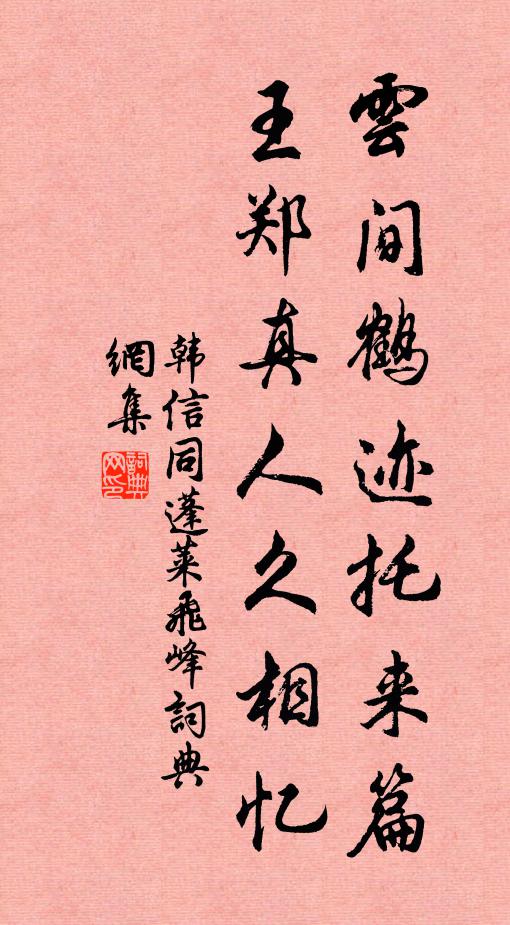 雲间鶴迹托来篇
王郑真人久相忆
韩信同蓬莱飛峰詞典
網集
詞典
网印